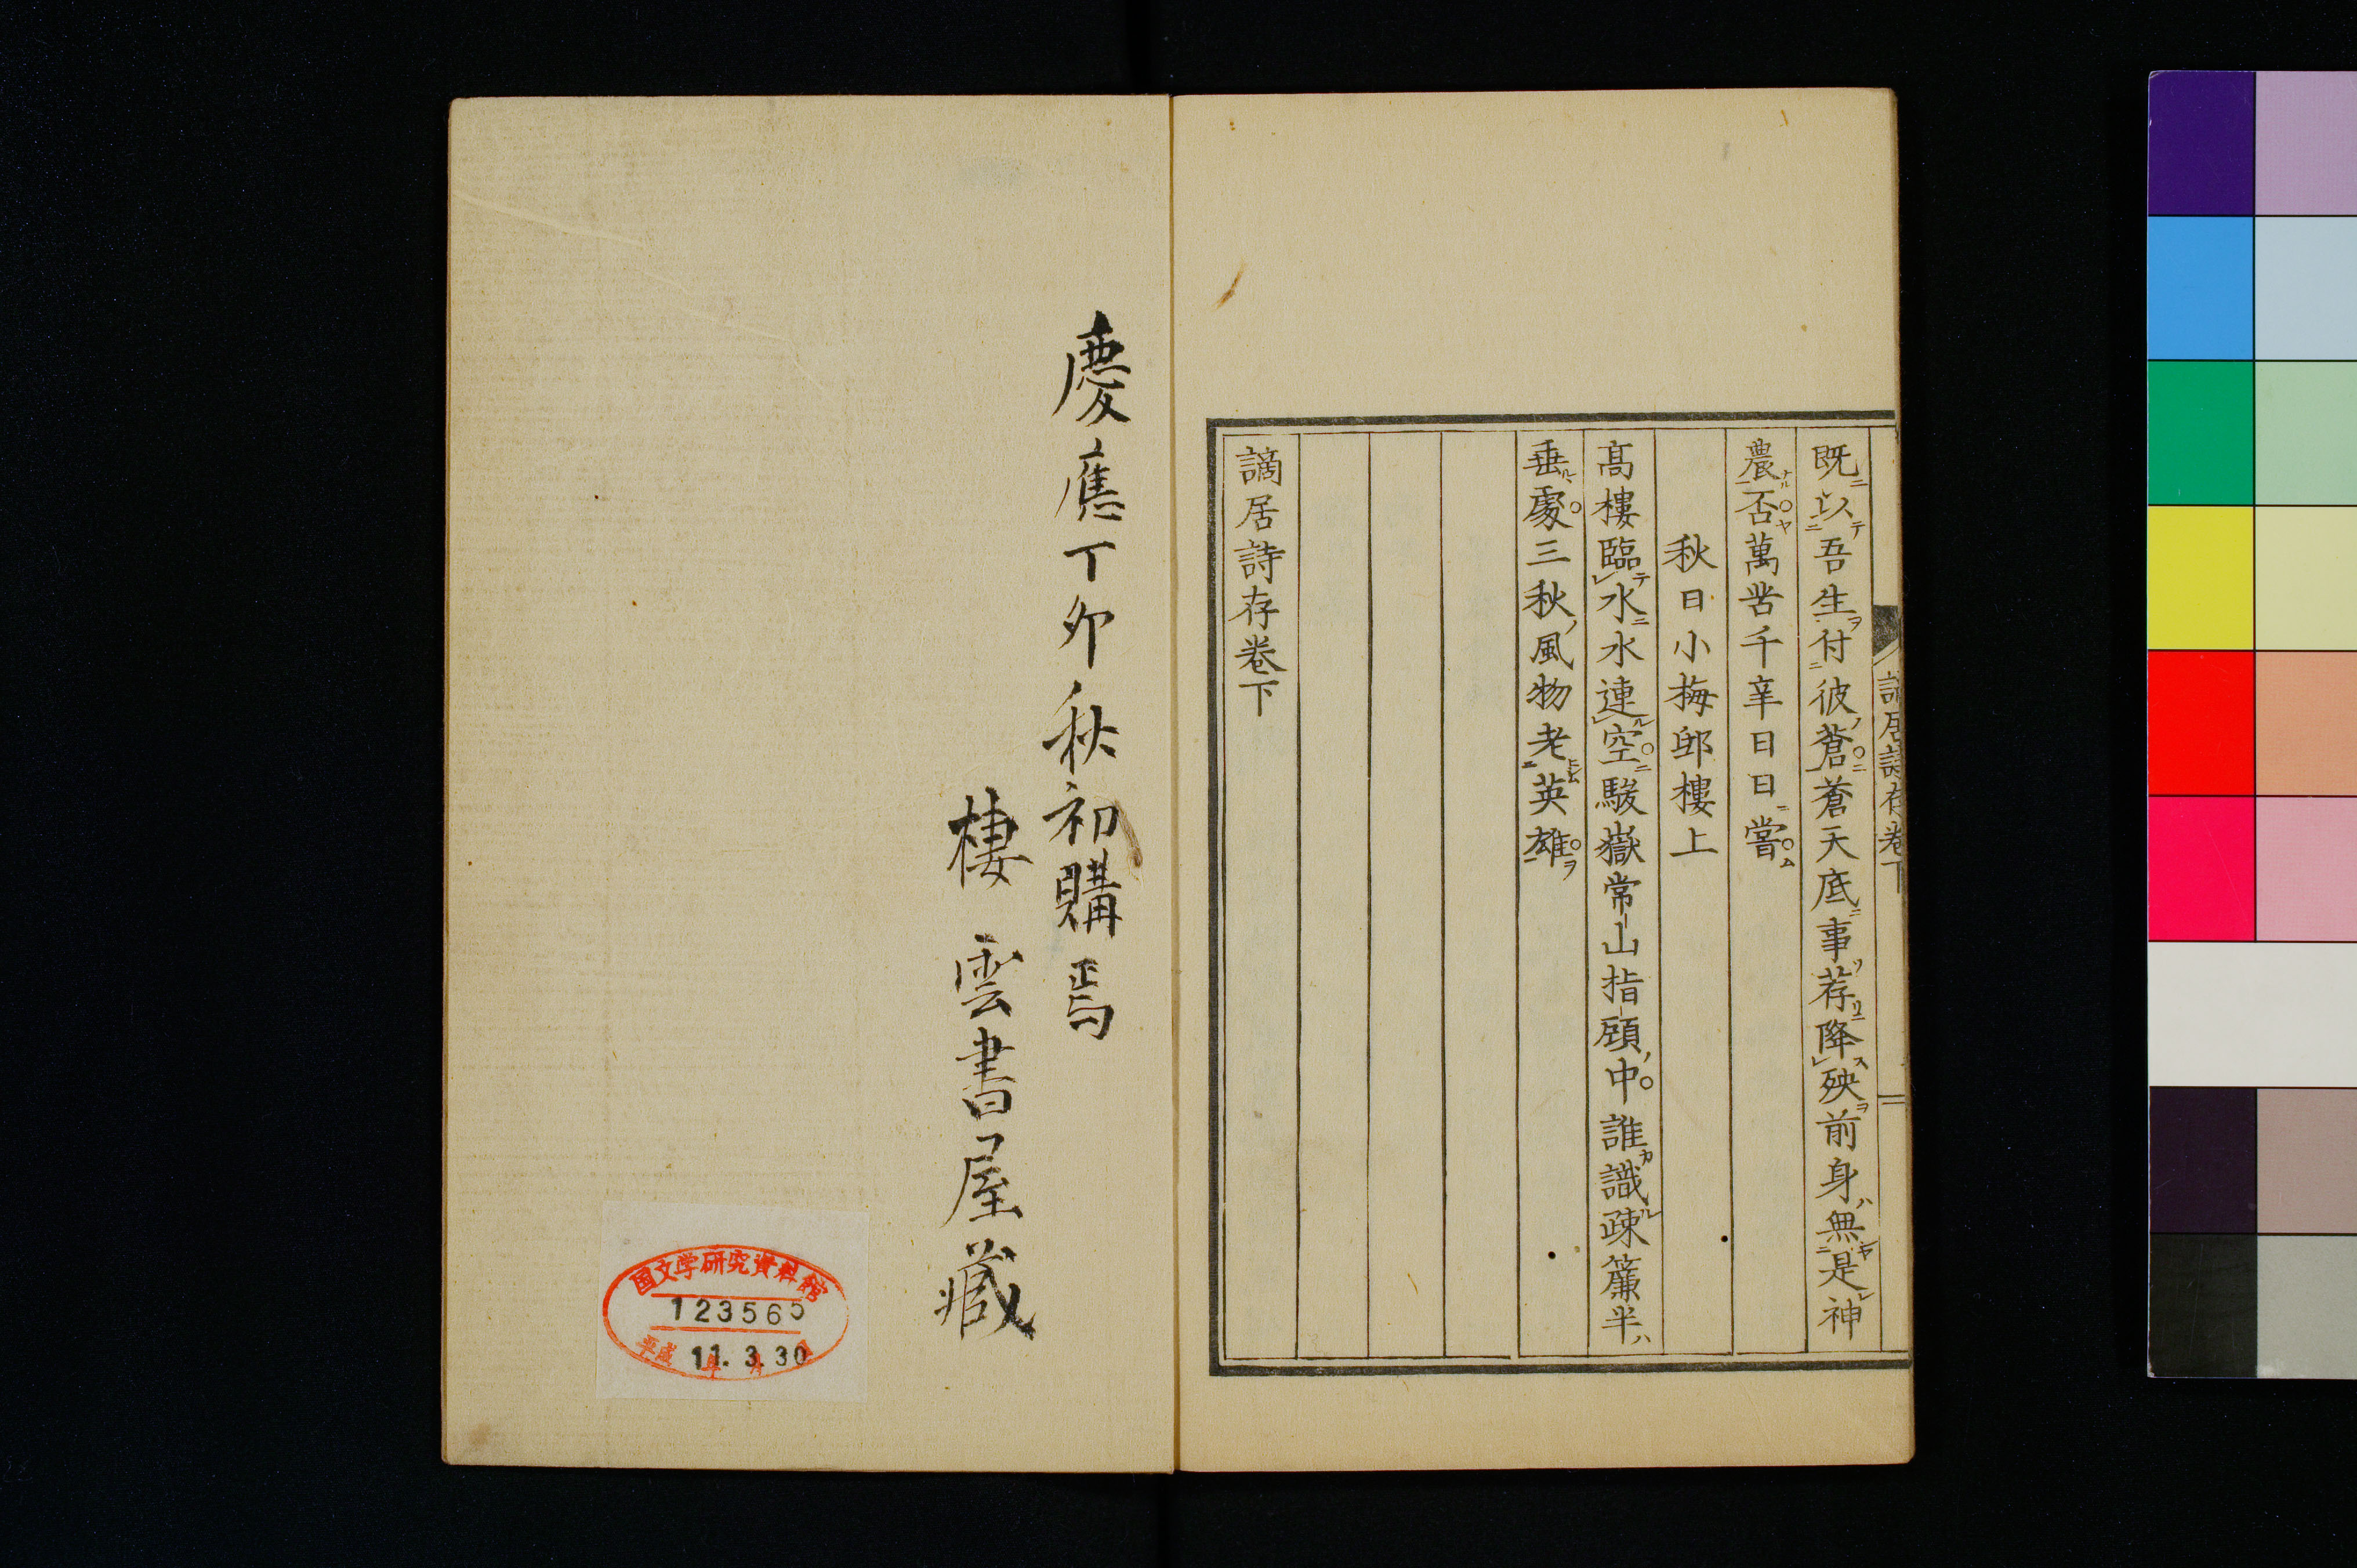 既以吾生付彼蒼蒼天底事荐降殃前身無是神
農否萬苦千辛日日嘗
秋日小梅邸樓上
高樓臨水水連空駿嶽常山指顧中誰識疎簾半
垂處三秋風物老英雄
謫居詩存卷下
慶應丁卯秋初購焉
棲雲書屋藏
国文学研究資料館
123565
平成 11. 3. 30